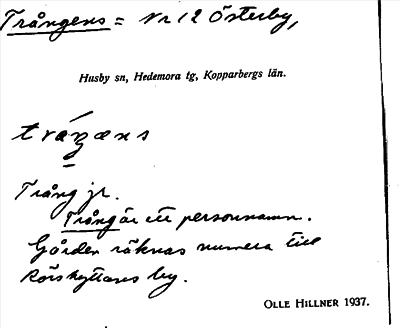 Trångens = Nr 12 Österby,
Husby sn, Hedemora tg, Kopparbergs län.
Trång jr.
Trång är ett personnamn.
Gården räknas numera till
Rörshyttans by.
OLLE HILLNER 1937.